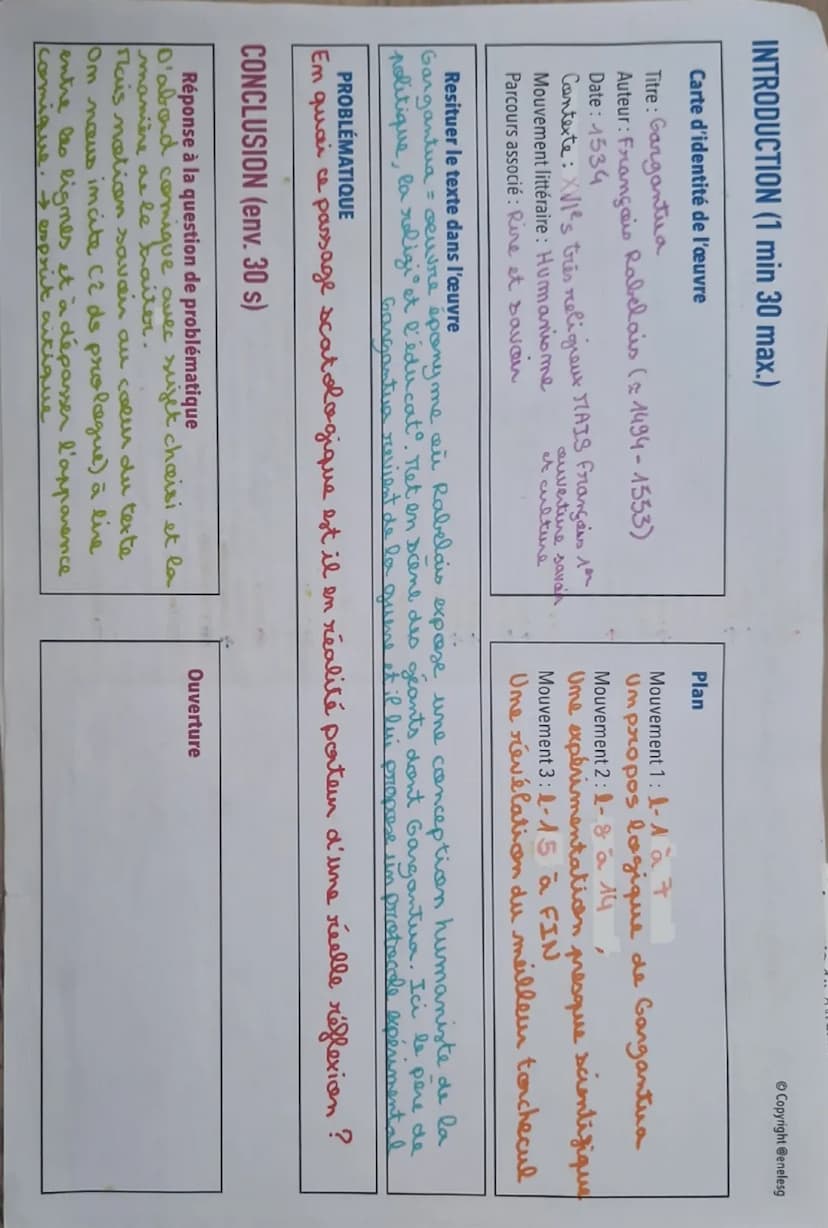 INTRODUCTION (1 min 30 max.)
© Copyright @enelesg
Carte d'identité de l'œuvre
Titre : Gargantua
Auteur : François Rabelais (≈ 1494 - 1553)
Date : 1534
Contexte : XVIᵉs très religieux MAIS François 1ᵉʳ
ouverture savoir
et culture
Mouvement littéraire : Humanisme
Parcours associé : Rire et savoir
Plan
Mouvement 1 : l-1 à 7
Un propos logique de Gargantua
Mouvement 2 : l-8 à 14,
Une expérimentation presque scientifique
Mouvement 3 : l-15 à FIN
Une révélation du meilleur torchecul
Resituer le texte dans l'œuvre
Gargantua = œuvre éponyme où Rabelais expose une conception humaniste de la
politique, la religi° et l'éducat°. Met en scène des géants dont Gargantua. Ici le père de
Gargantua revient de la guerre et il lui propose un protocole expérimental
PROBLÉMATIQUE
En quoi ce passage scatologique est il en réalité porteur d'une réelle réflexion ?
CONCLUSION (env. 30 s)
Réponse à la question de problématique
D'abord comique avec sujet choisi et la
manière de le traiter.
Mais notion savoir au cœur du texte
On nous incite (2 ds prologue) à lire
entre les lignes et à dépasser l'apparence
comique. → esprit critique
Ouverture